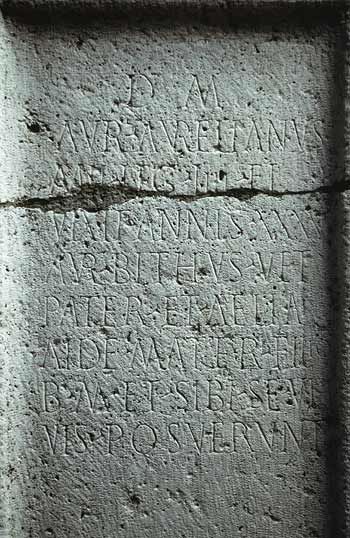 D M
AVR AVRELIANVS
ET
VIXIT ANNIS XXX
AVR BITHVS VET
PATER ET AELIA
AIDE MATER FIL
B M ET SIBI SE VI
VIS P Q SVERVNT